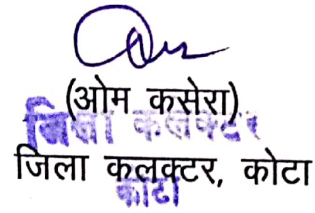 (ओम कसेरा)
जिला कलक्टर
जिला कलक्टर, कोटा
कोटा